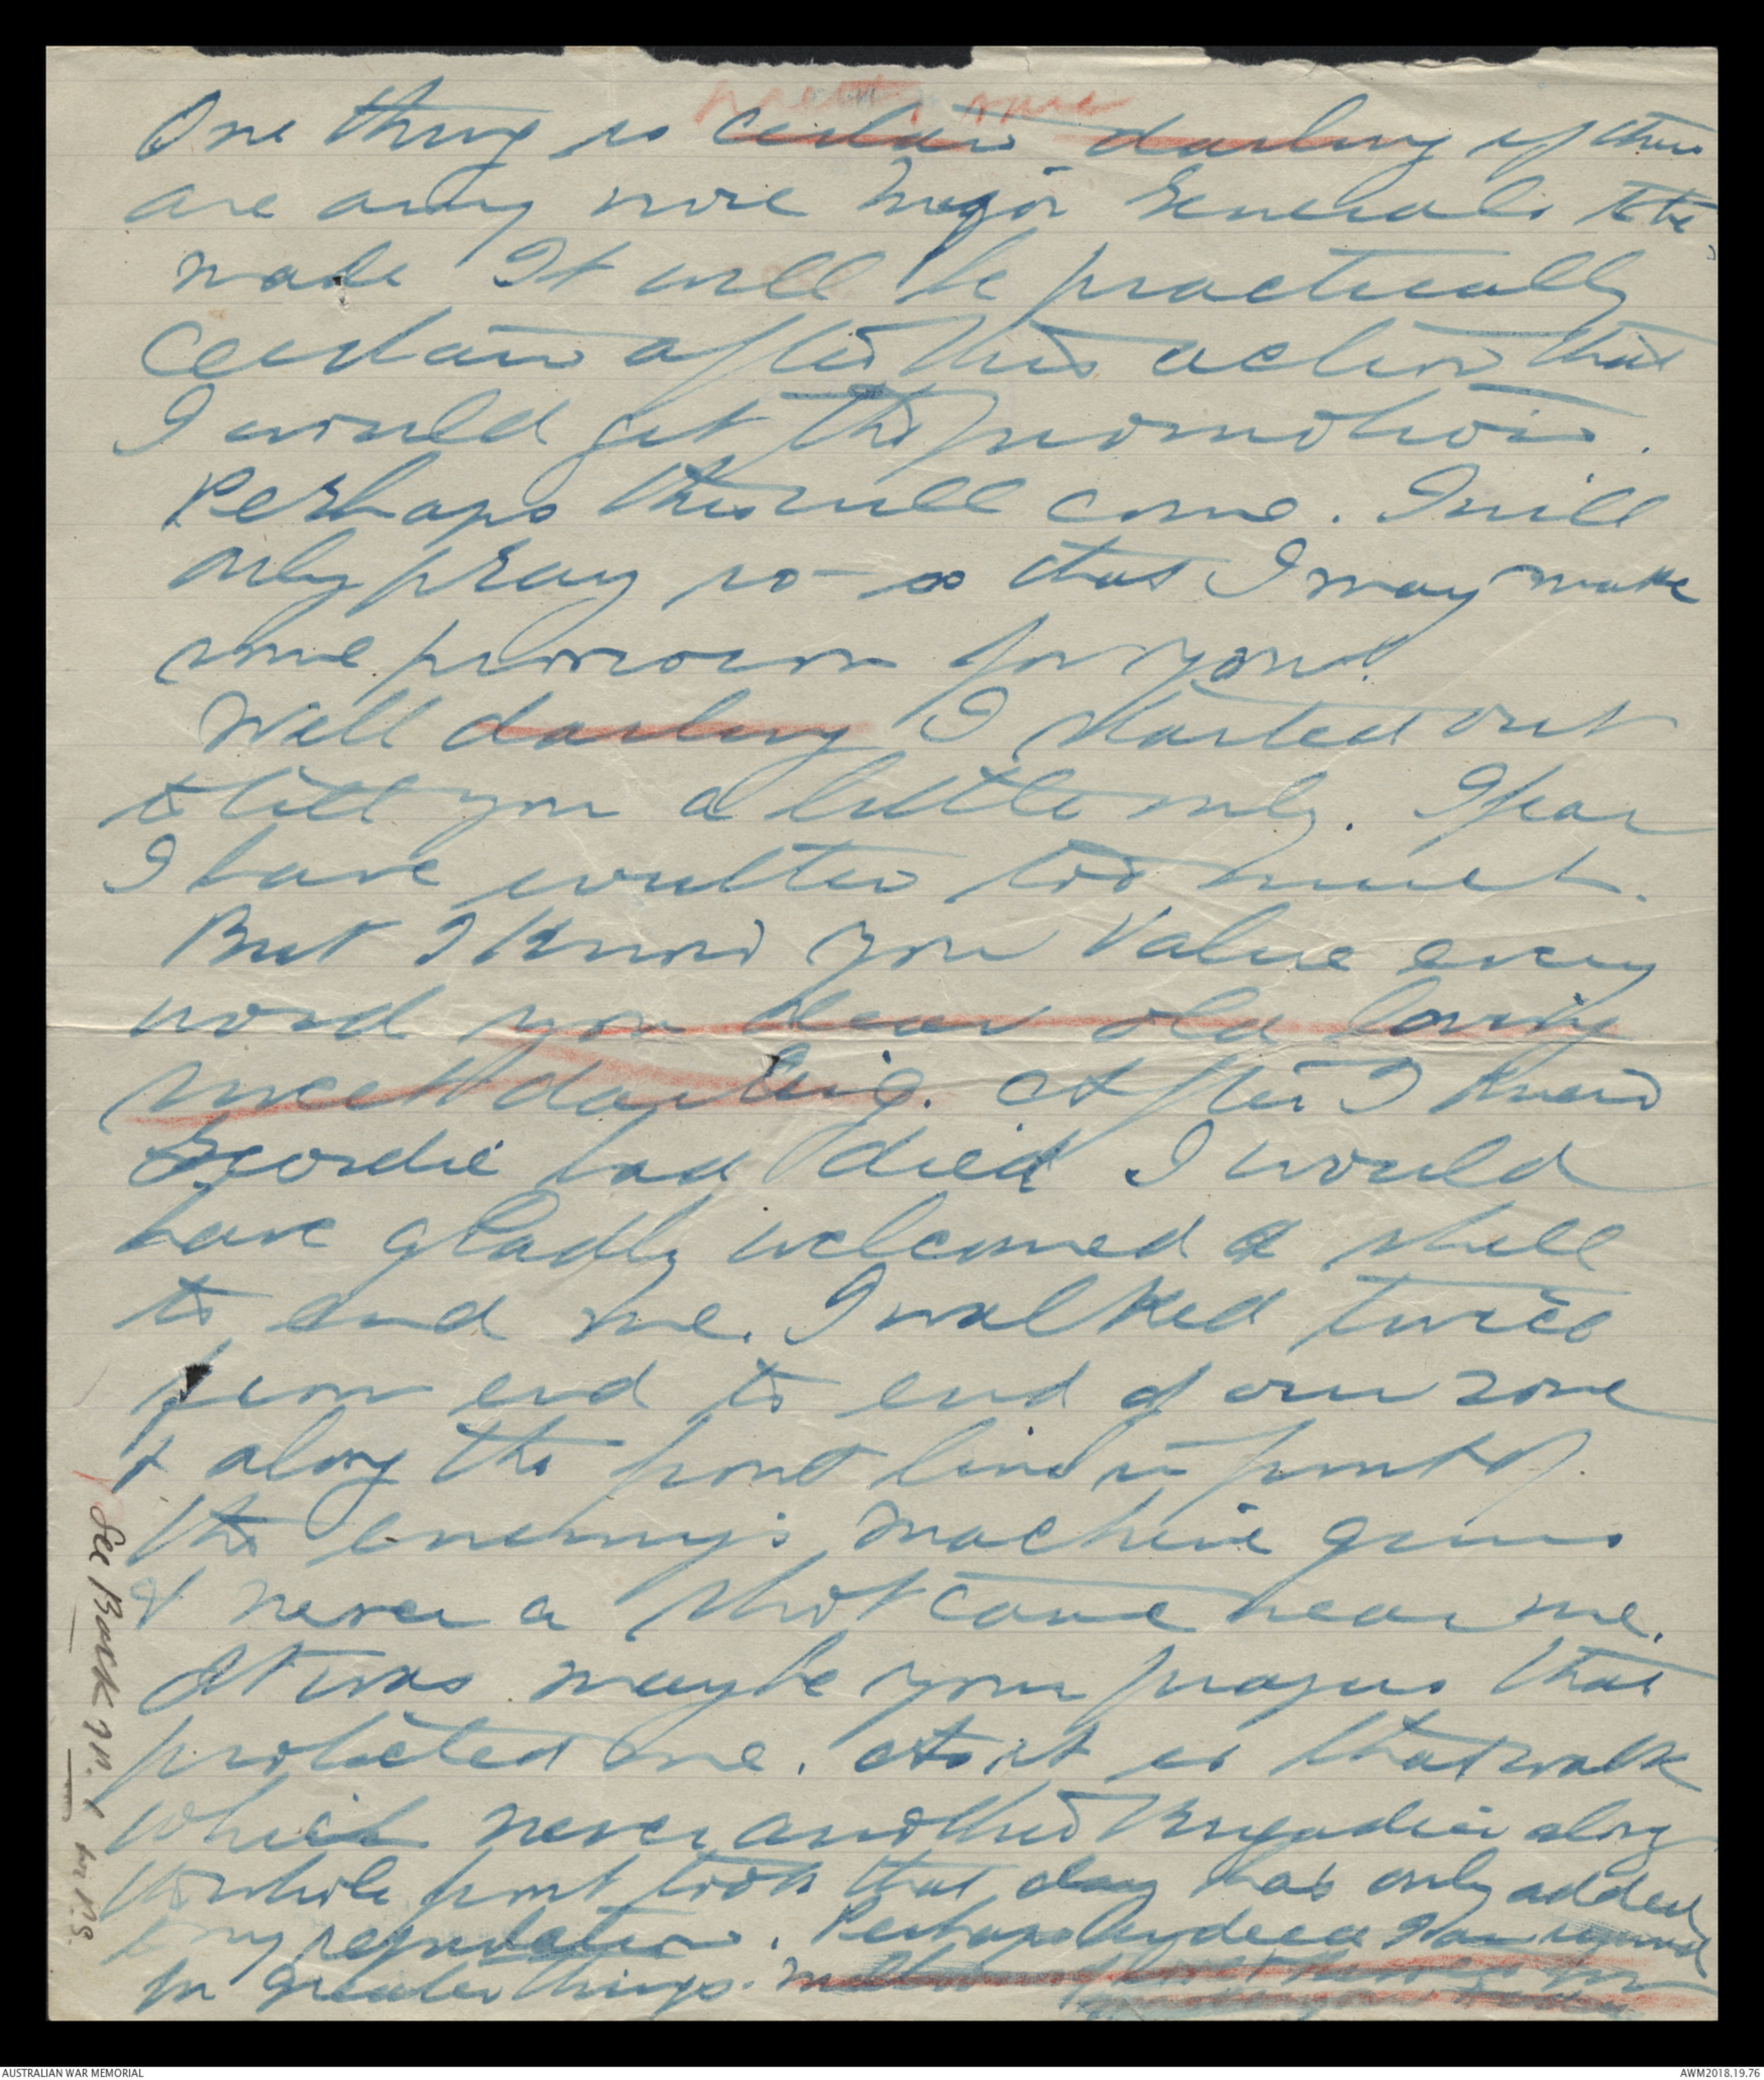 pretty sure
One thing is certain darling if there
are any more Major Generals to be
made It will be practically
certain after this action that
I would get the promotion.
Perhaps this will come. I will
only pray so - so that I may make
some provision for you.
Well darling I started out
to tell you a little only. I fear
I have written too much.
But I know you value every
word you dear old loving
sweet darling. After I knew
Geordie had died I would
have gladly welcomed a shell
to end me. I walked twice
from end to end of our zone
& along the front line in front of
the enemy's machine guns
& never a shot came near me.
It was maybe your prayers that
protected me. As it is that walk
which never another Brigadier along
the whole front took that day has only added
to my reputation. Perhaps indeed I am spared
for greater things.
See Back
AUSTRALIAN WAR MEMORIAL
AWM2018.19.76